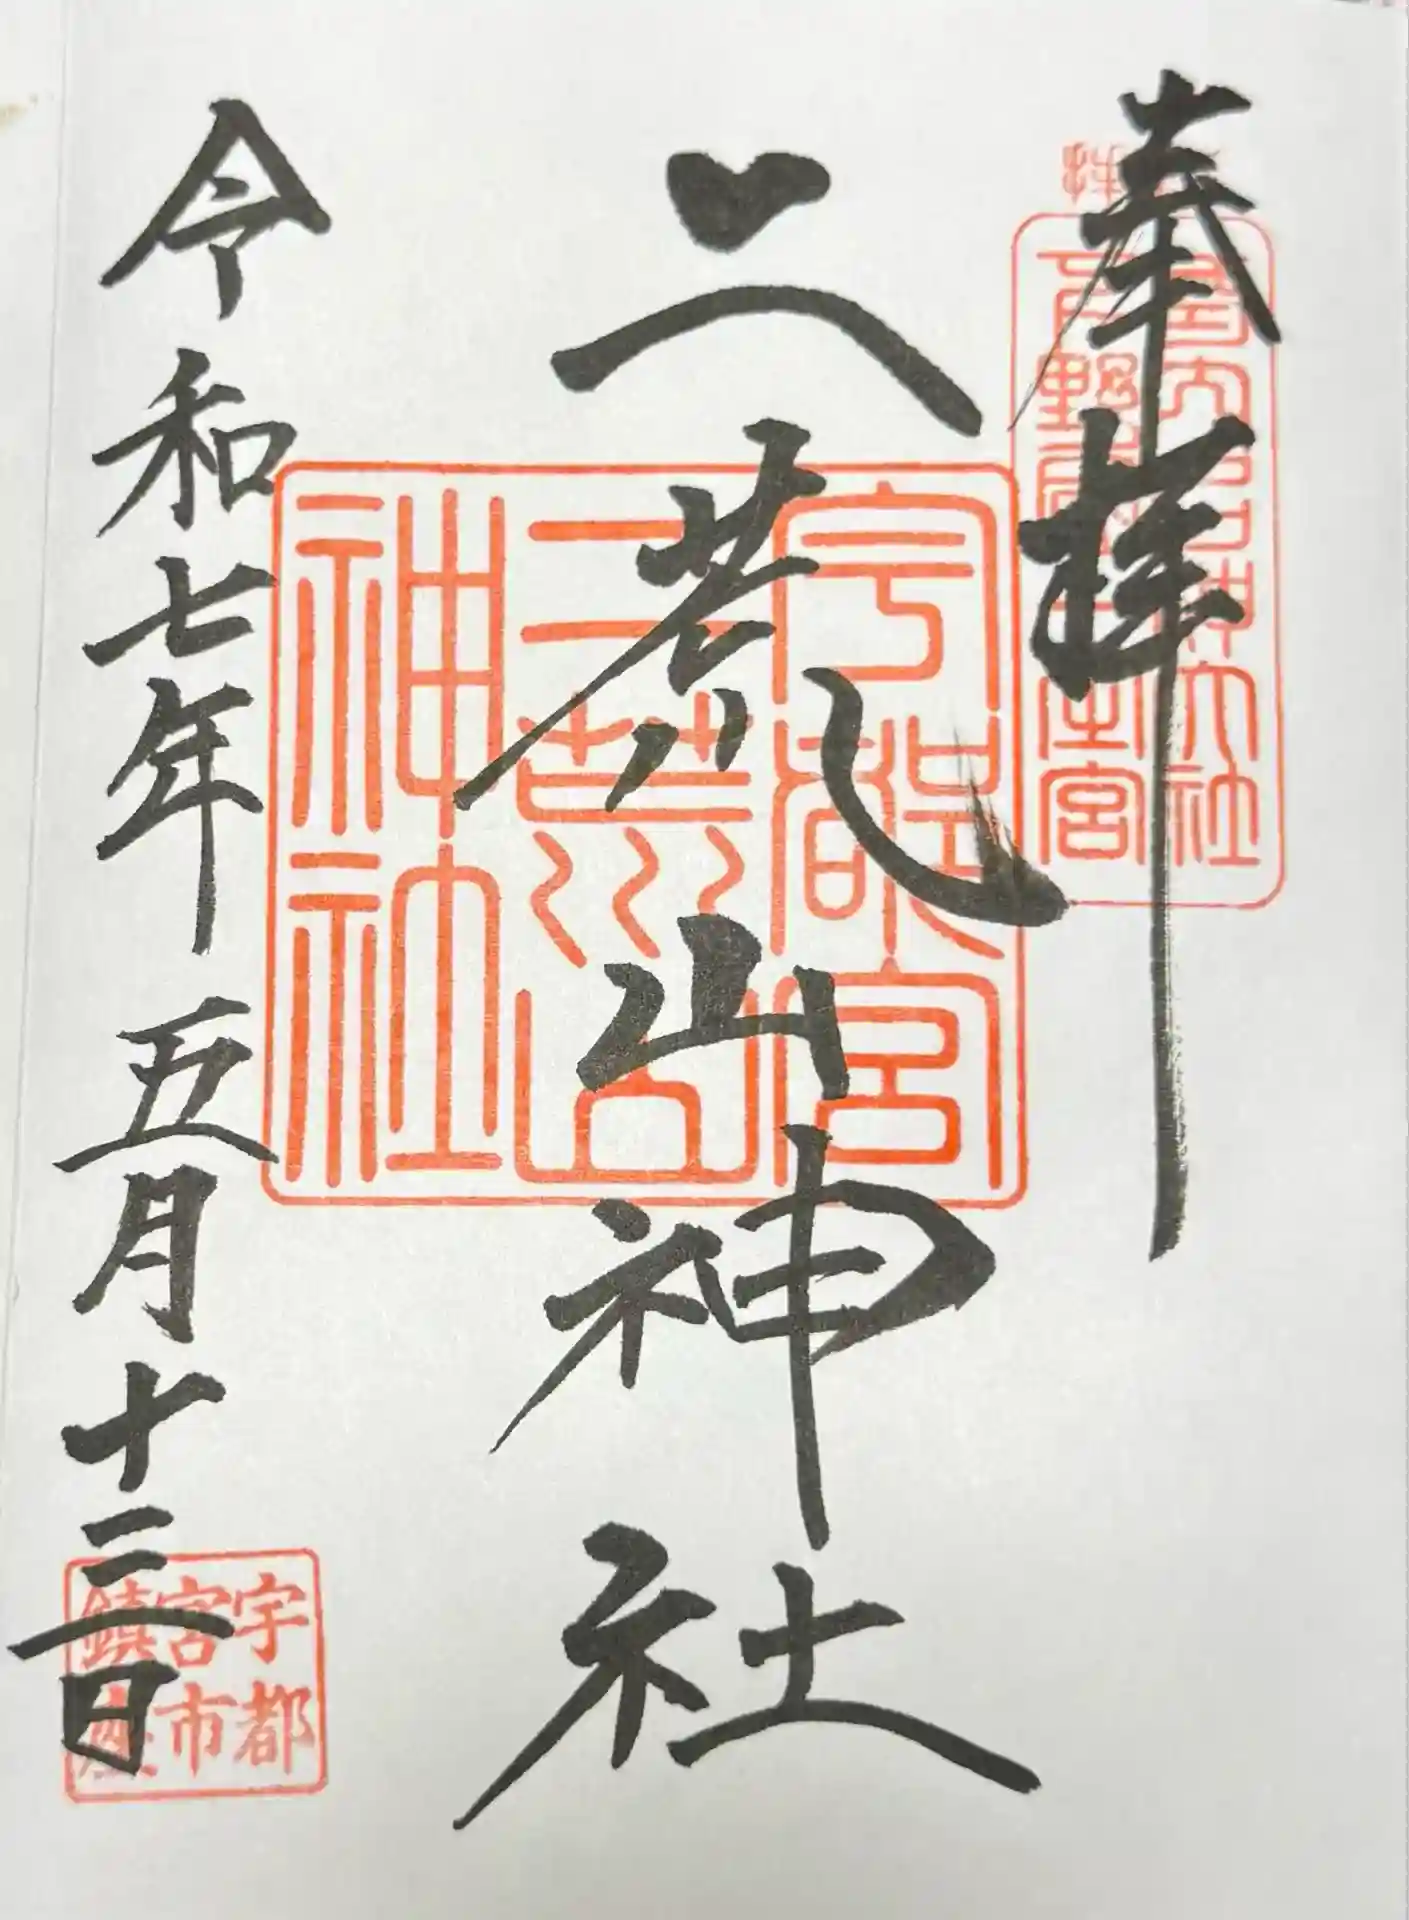 奉拝
内名神大社
下野國一之宮
二荒山神社
宇都宮
二荒山
神社
令和七年 五月十三日
宇都
宮市
鎮座